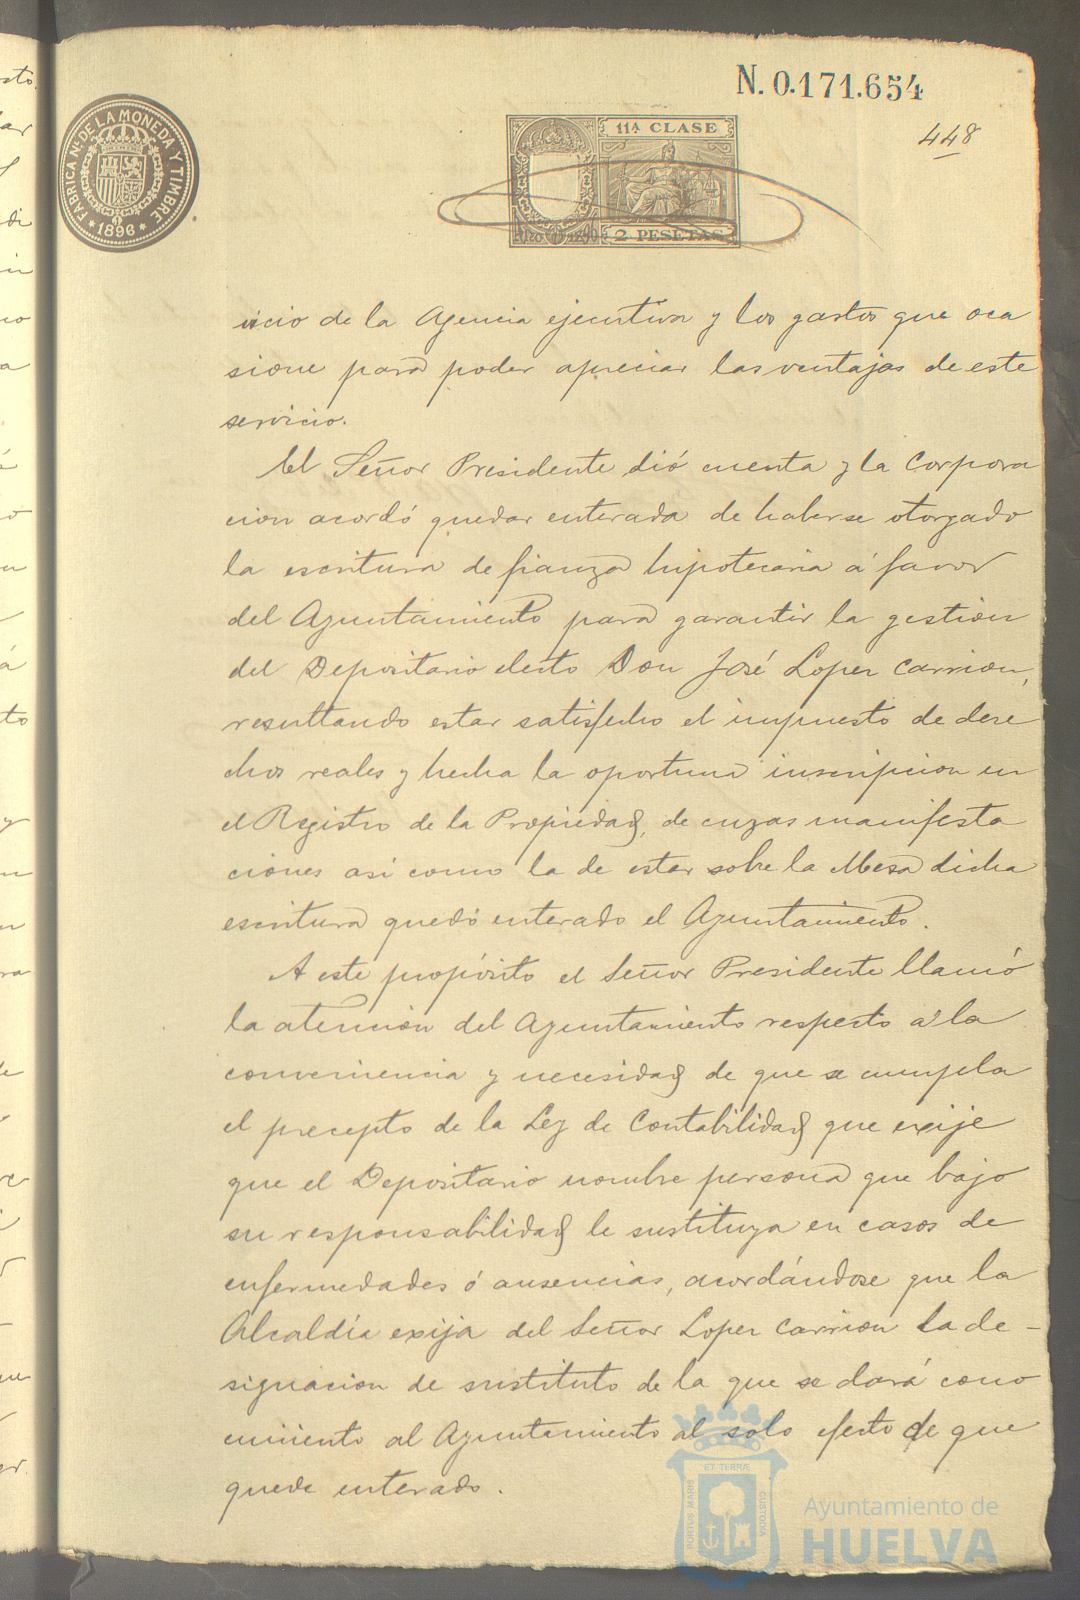 N. 0.171.654
448
FABRICA NAL. DE LA MONEDA Y TIMBRE
* 1896 *
11ª CLASE
2 PESETAS
vicio de la Agencia ejecutiva y los gastos que oca
sione para poder apreciar las ventajas de este
servicio.
El Señor Presidente dió cuenta y la Corpora
cion acordó quedar enterada de haberse otorgado
la escritura de fianza hipotecaria á favor
del Ayuntamiento para garantir la gestion
del Depositario electo Don José Lopez Carrion,
resultando estar satisfecho el impuesto de dere
chos reales y hecha la oportuna inscripcion en
el Registro de la Propiedad, de cuyas manifesta
ciones asi como la de estar sobre la Mesa dicha
escritura quedó enterado el Ayuntamiento.
A este propósito el Señor Presidente llamó
la atencion del Ayuntamiento respecto á la
conveniencia y necesidad de que se cumpla
el precepto de la Ley de Contabilidad que exije
que el Depositario nombre persona que bajo
su responsabilidad le sustituya en casos de
enfermedades ó ausencias, acordándose que la
Alcaldía exija del Señor Lopez Carrion la de-
signacion de sustituto de la que se dará cono
cimiento al Ayuntamiento al solo efecto de que
quede enterado.
PORTUS MARIS ET TERRÆ CUSTODIA
Ayuntamiento de
HUELVA